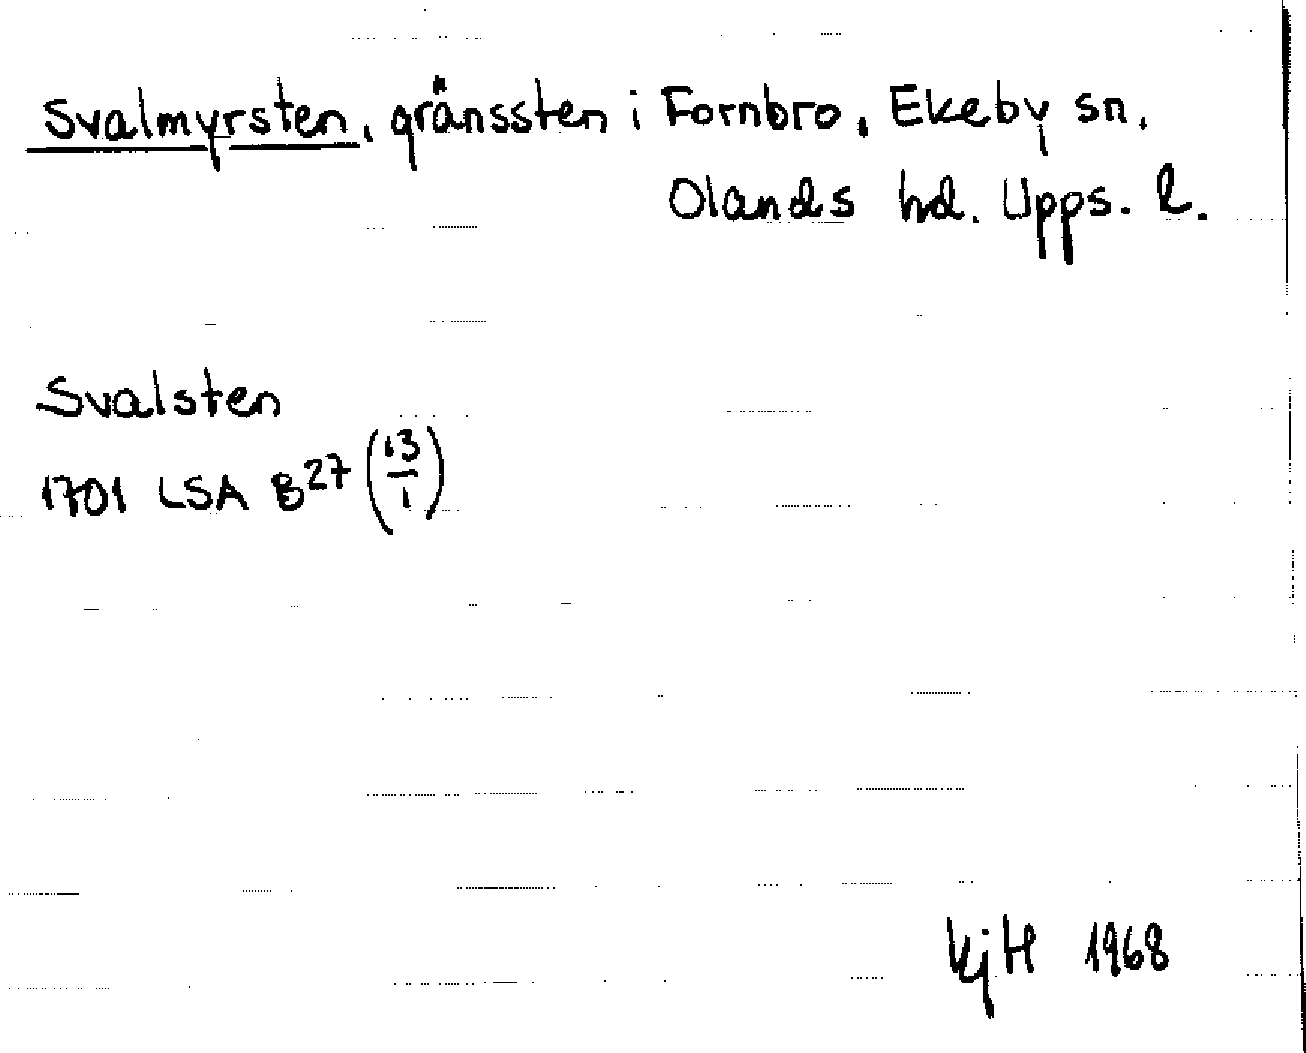 Svalmyrsten, gränssten i Fornbro, Ekeby sn.
Olands hd. Upps. l.
Svalsten
1701 LSA B27 (13/1)
KjH 1968